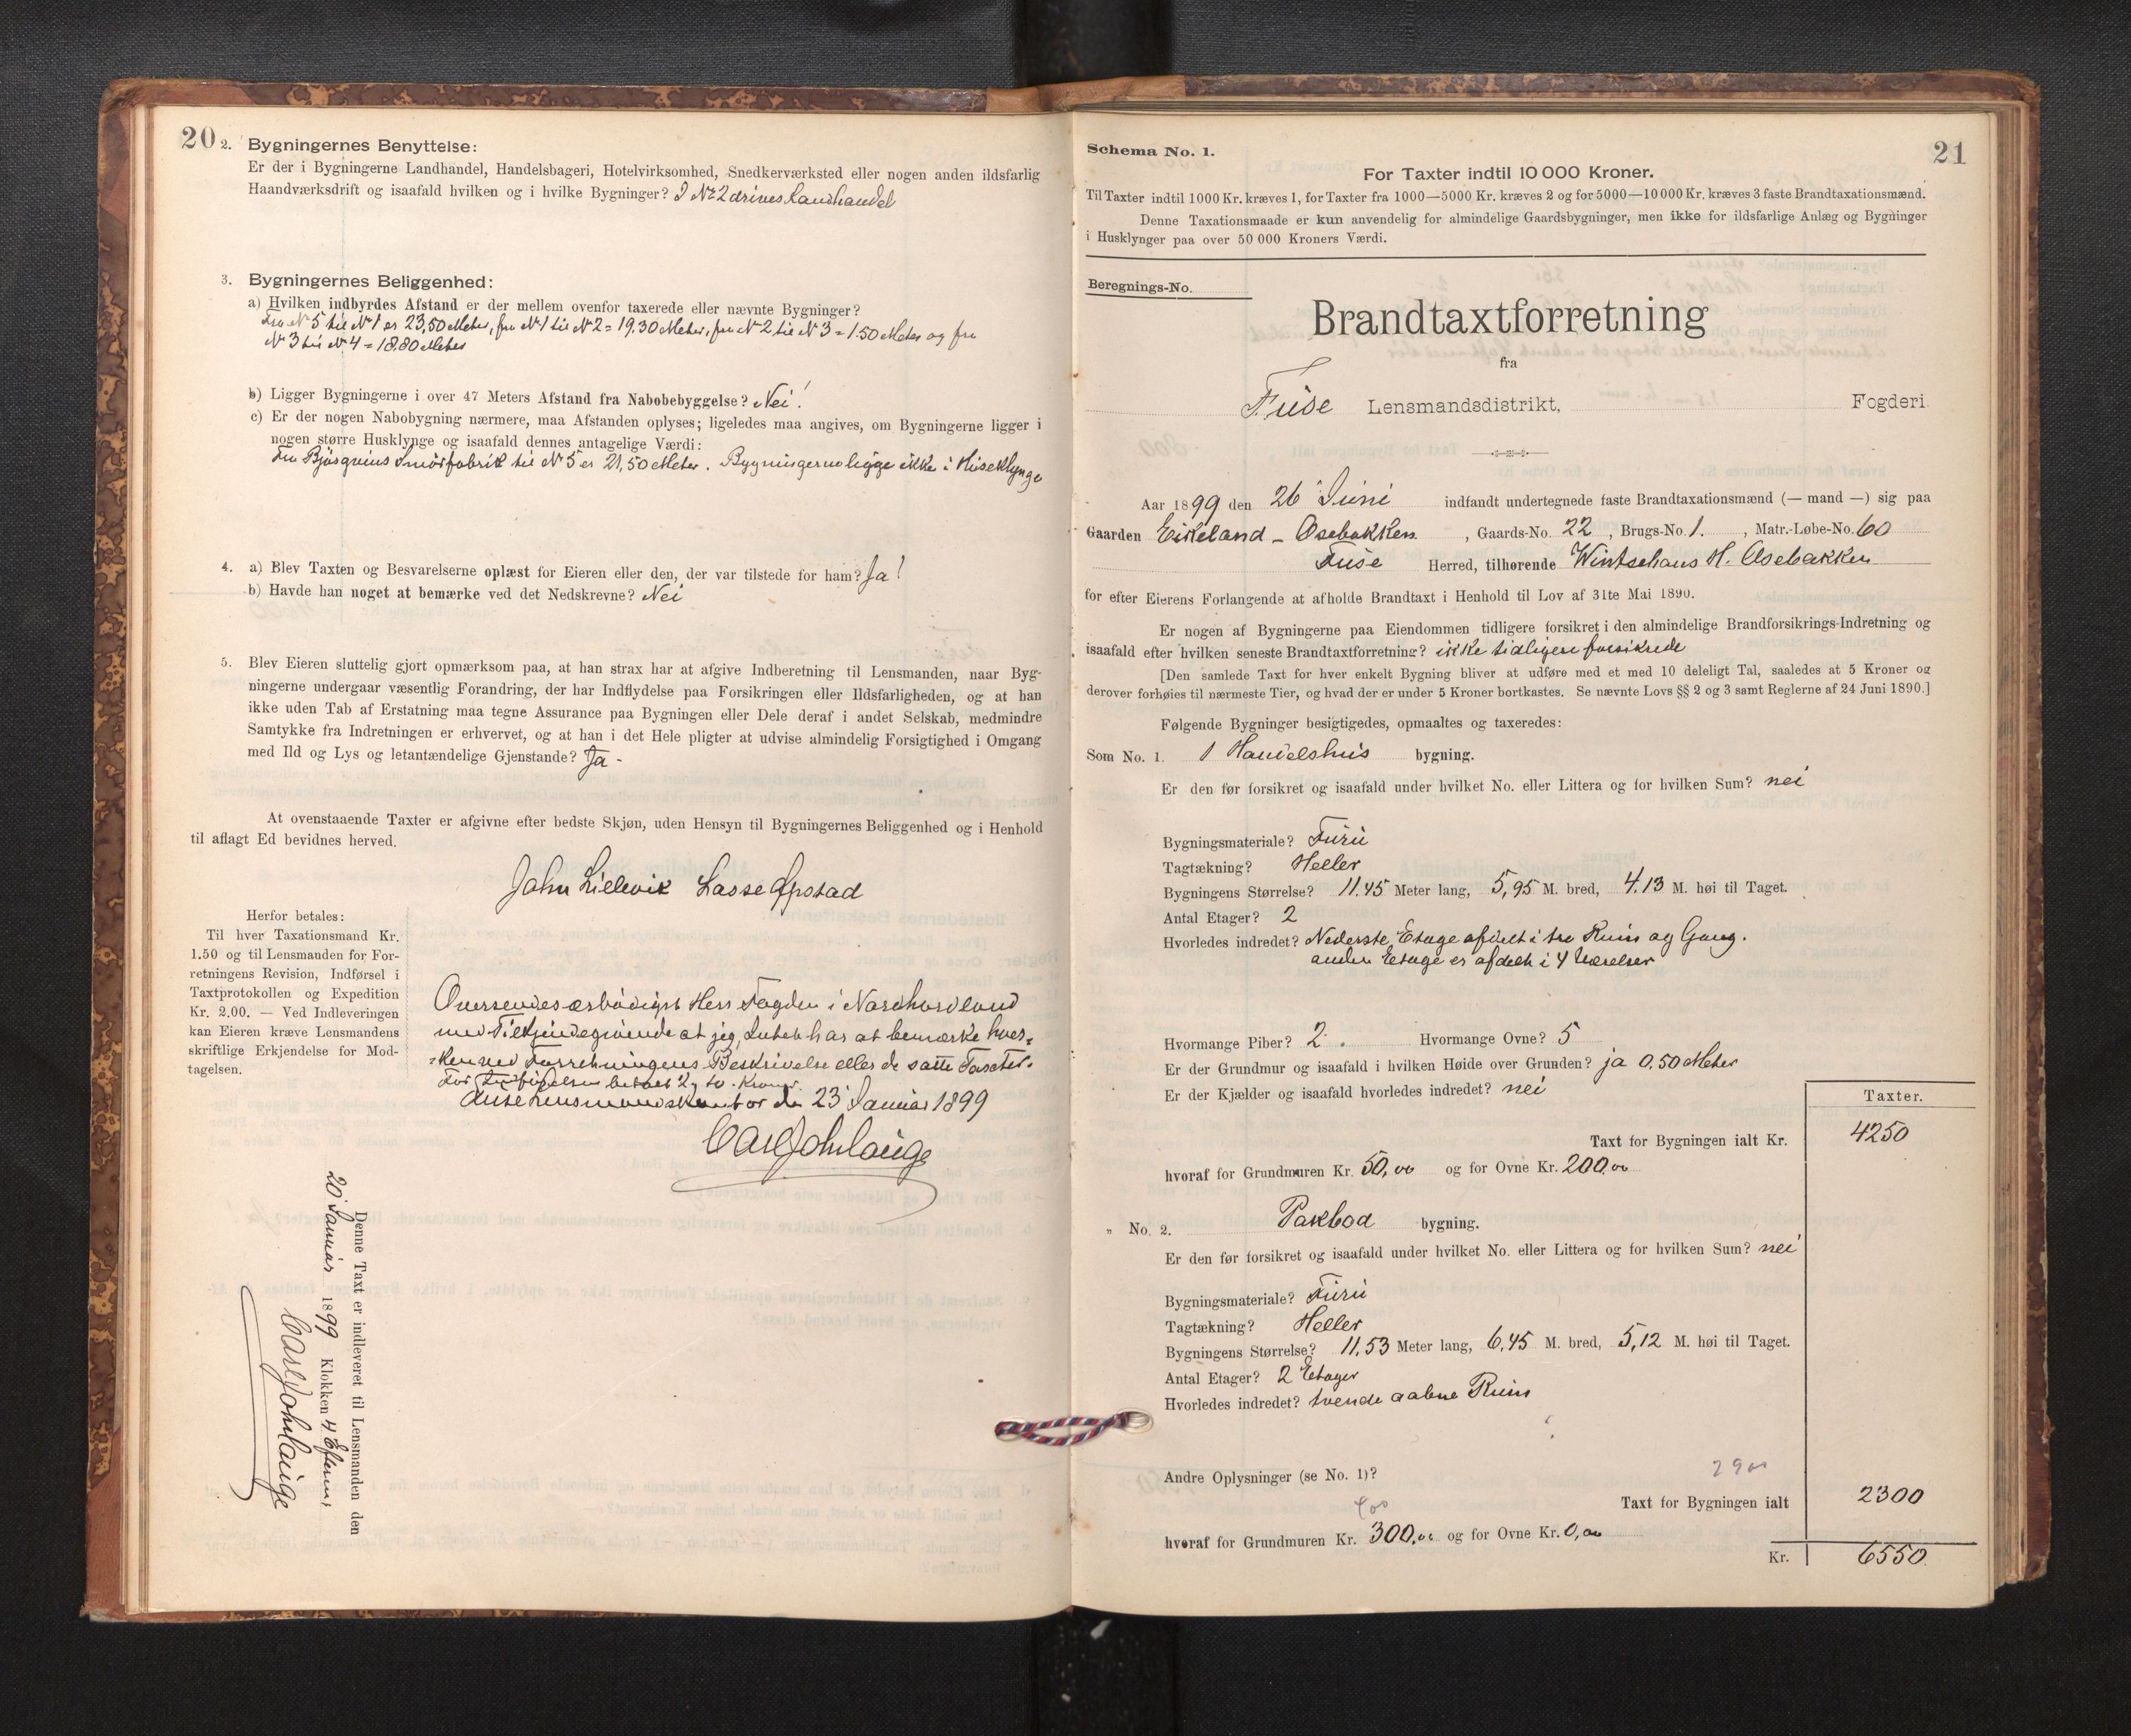 20
2. Bygningernes Benyttelse:
Er der i Bygningerne Landhandel, Handelsbageri, Hotelvirksomhed, Snedkerværksted eller nogen anden ildsfarlig
Haandværksdrift og isaafald hvilken og i hvilke Bygninger? I No 2 drives Landhandel
3. Bygningernes Beliggenhed:
a) Hvilken indbyrdes Afstand er der mellem ovenfor taxerede eller nævnte Bygninger?
Fra No 5 til No 1 er 23,50 Meter, fra No 1 til No 2 = 19.30 Meter, fra No 2 til No 3 = 1.50 Meter og fra
No 3 til No 4 = 18.80 Meter
b) Ligger Bygningerne i over 47 Meters Afstand fra Nabobebyggelse? Nei!
c) Er der nogen Nabobygning nærmere, maa Afstanden oplyses; ligeledes maa angives, om Bygningerne ligger i
nogen større Husklynge og isaafald dennes antagelige Værdi:
Fra Smörfabrik til No 5 er 21,50 Meter. Bygningerne ligge ikke i Huseklynge
4. a) Blev Taxten og Besvarelserne oplæst for Eieren eller den, der var tilstede for ham? Ja!
b) Havde han noget at bemærke ved det Nedskrevne? Nei
5. Blev Eieren sluttelig gjort opmærksom paa, at han strax har at afgive Indberetning til Lensmanden, naar Byg-
ningerne undergaar væsentlig Forandring, der har Indflydelse paa Forsikringen eller Ildsfarligheden, og at han
ikke uden Tab af Erstatning maa tegne Assurance paa Bygningen eller Dele deraf i andet Selskab, medmindre
Samtykke fra Indretningen er erhvervet, og at han i det Hele pligter at udvise almindelig Forsigtighed i Omgang
med Ild og Lys og letantændelige Gjenstande? Ja -
At ovenstaaende Taxter er afgivne efter bedste Skjøn, uden Hensyn til Bygningernes Beliggenhed og i Henhold
til aflagt Ed bevidnes herved.
John Lillevik Lasse Opstad
Herfor betales:
Til hver Taxationsmand Kr.
1.50 og til Lensmanden for For-
retningens Revision, Indførsel i
Taxtprotokollen og Expedition
Kr. 2.00. — Ved Indleveringen
kan Eieren kræve Lensmandens
skriftlige Erkjendelse for Mod-
tagelsen.
Oversendes ærbödigst Herr Fogden i Nordhordland
med Tilkjendegivende at jeg, Intet har at bemærke hver-
ken ved Forretningens Beskrivelse eller de satte Taxter.
For betalt 2, to Kroner.
Fuse Lensmandskontor den 23 Januar 1899
Carl Joh Lauge
Denne Taxt er indleveret til Lensmanden den
20 Januar 1899 Klokken 4 Efterm:
Carl Joh Lauge
21
Schema No. 1.
For Taxter indtil 10 000 Kroner.
Til Taxter indtil 1000 Kr. kræves 1, for Taxter fra 1000—5000 Kr. kræves 2 og for 5000—10 000 Kr. kræves 3 faste Brandtaxationsmænd.
Denne Taxationsmaade er kun anvendelig for almindelige Gaardsbygninger, men ikke for ildsfarlige Anlæg og Bygninger
i Husklynger paa over 50 000 Kroners Værdi.
Beregnings-No.
Brandtaxtforretning
fra
Fuse Lensmandsdistrikt, Fogderi
Aar 1899 den 26 Juni indfandt undertegnede faste Brandtaxationsmænd (— mand —) sig paa
Gaarden Eikeland - Osebakken, Gaards-No. 22, Brugs-No. 1., Matr.-Løbe-No. 60
Fuse Herred, tilhørende Wintsehans H. Osebakken
for efter Eierens Forlangende at afholde Brandtaxt i Henhold til Lov af 31te Mai 1890.
Er nogen af Bygningerne paa Eiendommen tidligere forsikret i den almindelige Brandforsikrings-Indretning og
isaafald efter hvilken seneste Brandtaxtforretning? ikke tidligere forsikrede
[Den samlede Taxt for hver enkelt Bygning bliver at udføre med et med 10 deleligt Tal, saaledes at 5 Kroner og
derover forhøies til nærmeste Tier, og hvad der er under 5 Kroner bortkastes. Se nævnte Lovs §§ 2 og 3 samt Reglerne af 24 Juni 1890.]
Følgende Bygninger besigtigedes, opmaaltes og taxeredes:
Som No. 1. 1 Handelshus bygning.
Er den før forsikret og isaafald under hvilket No. eller Littera og for hvilken Sum? nei
Bygningsmateriale? Furu
Tagtækning? Heller
Bygningens Størrelse? 11.45 Meter lang, 5,95 M. bred, 4.13 M. høi til Taget.
Antal Etager? 2
Hvorledes indredet? Nederste Etage afdelt i tre Rum og Gang.
anden Etage er afdelt i 4 Værelser
Hvormange Piber? 2. Hvormange Ovne? 5
Er der Grundmur og isaafald i hvilken Høide over Grunden? ja 0,50 Meter
Er der Kjælder og isaafald hvorledes indredet? nei
Taxter.
Taxt for Bygningen ialt Kr. 4250
hvoraf for Grundmuren Kr. 50,00 og for Ovne Kr. 200,00
„ No. 2. Pakbod bygning.
Er den før forsikret og isaafald under hvilket No. eller Littera og for hvilken Sum? nei
Bygningsmateriale? Furu
Tagtækning? Heller
Bygningens Størrelse? 11,53 Meter lang, 6,45 M. bred, 5,12 M. høi til Taget.
Antal Etager? 2 Etager
Hvorledes indredet? tvende aabne Rum
Andre Oplysninger (se No. 1)?
Taxt for Bygningen ialt 2300
hvoraf for Grundmuren Kr. 300,00 og for Ovne Kr. 0,00
Kr. 6550